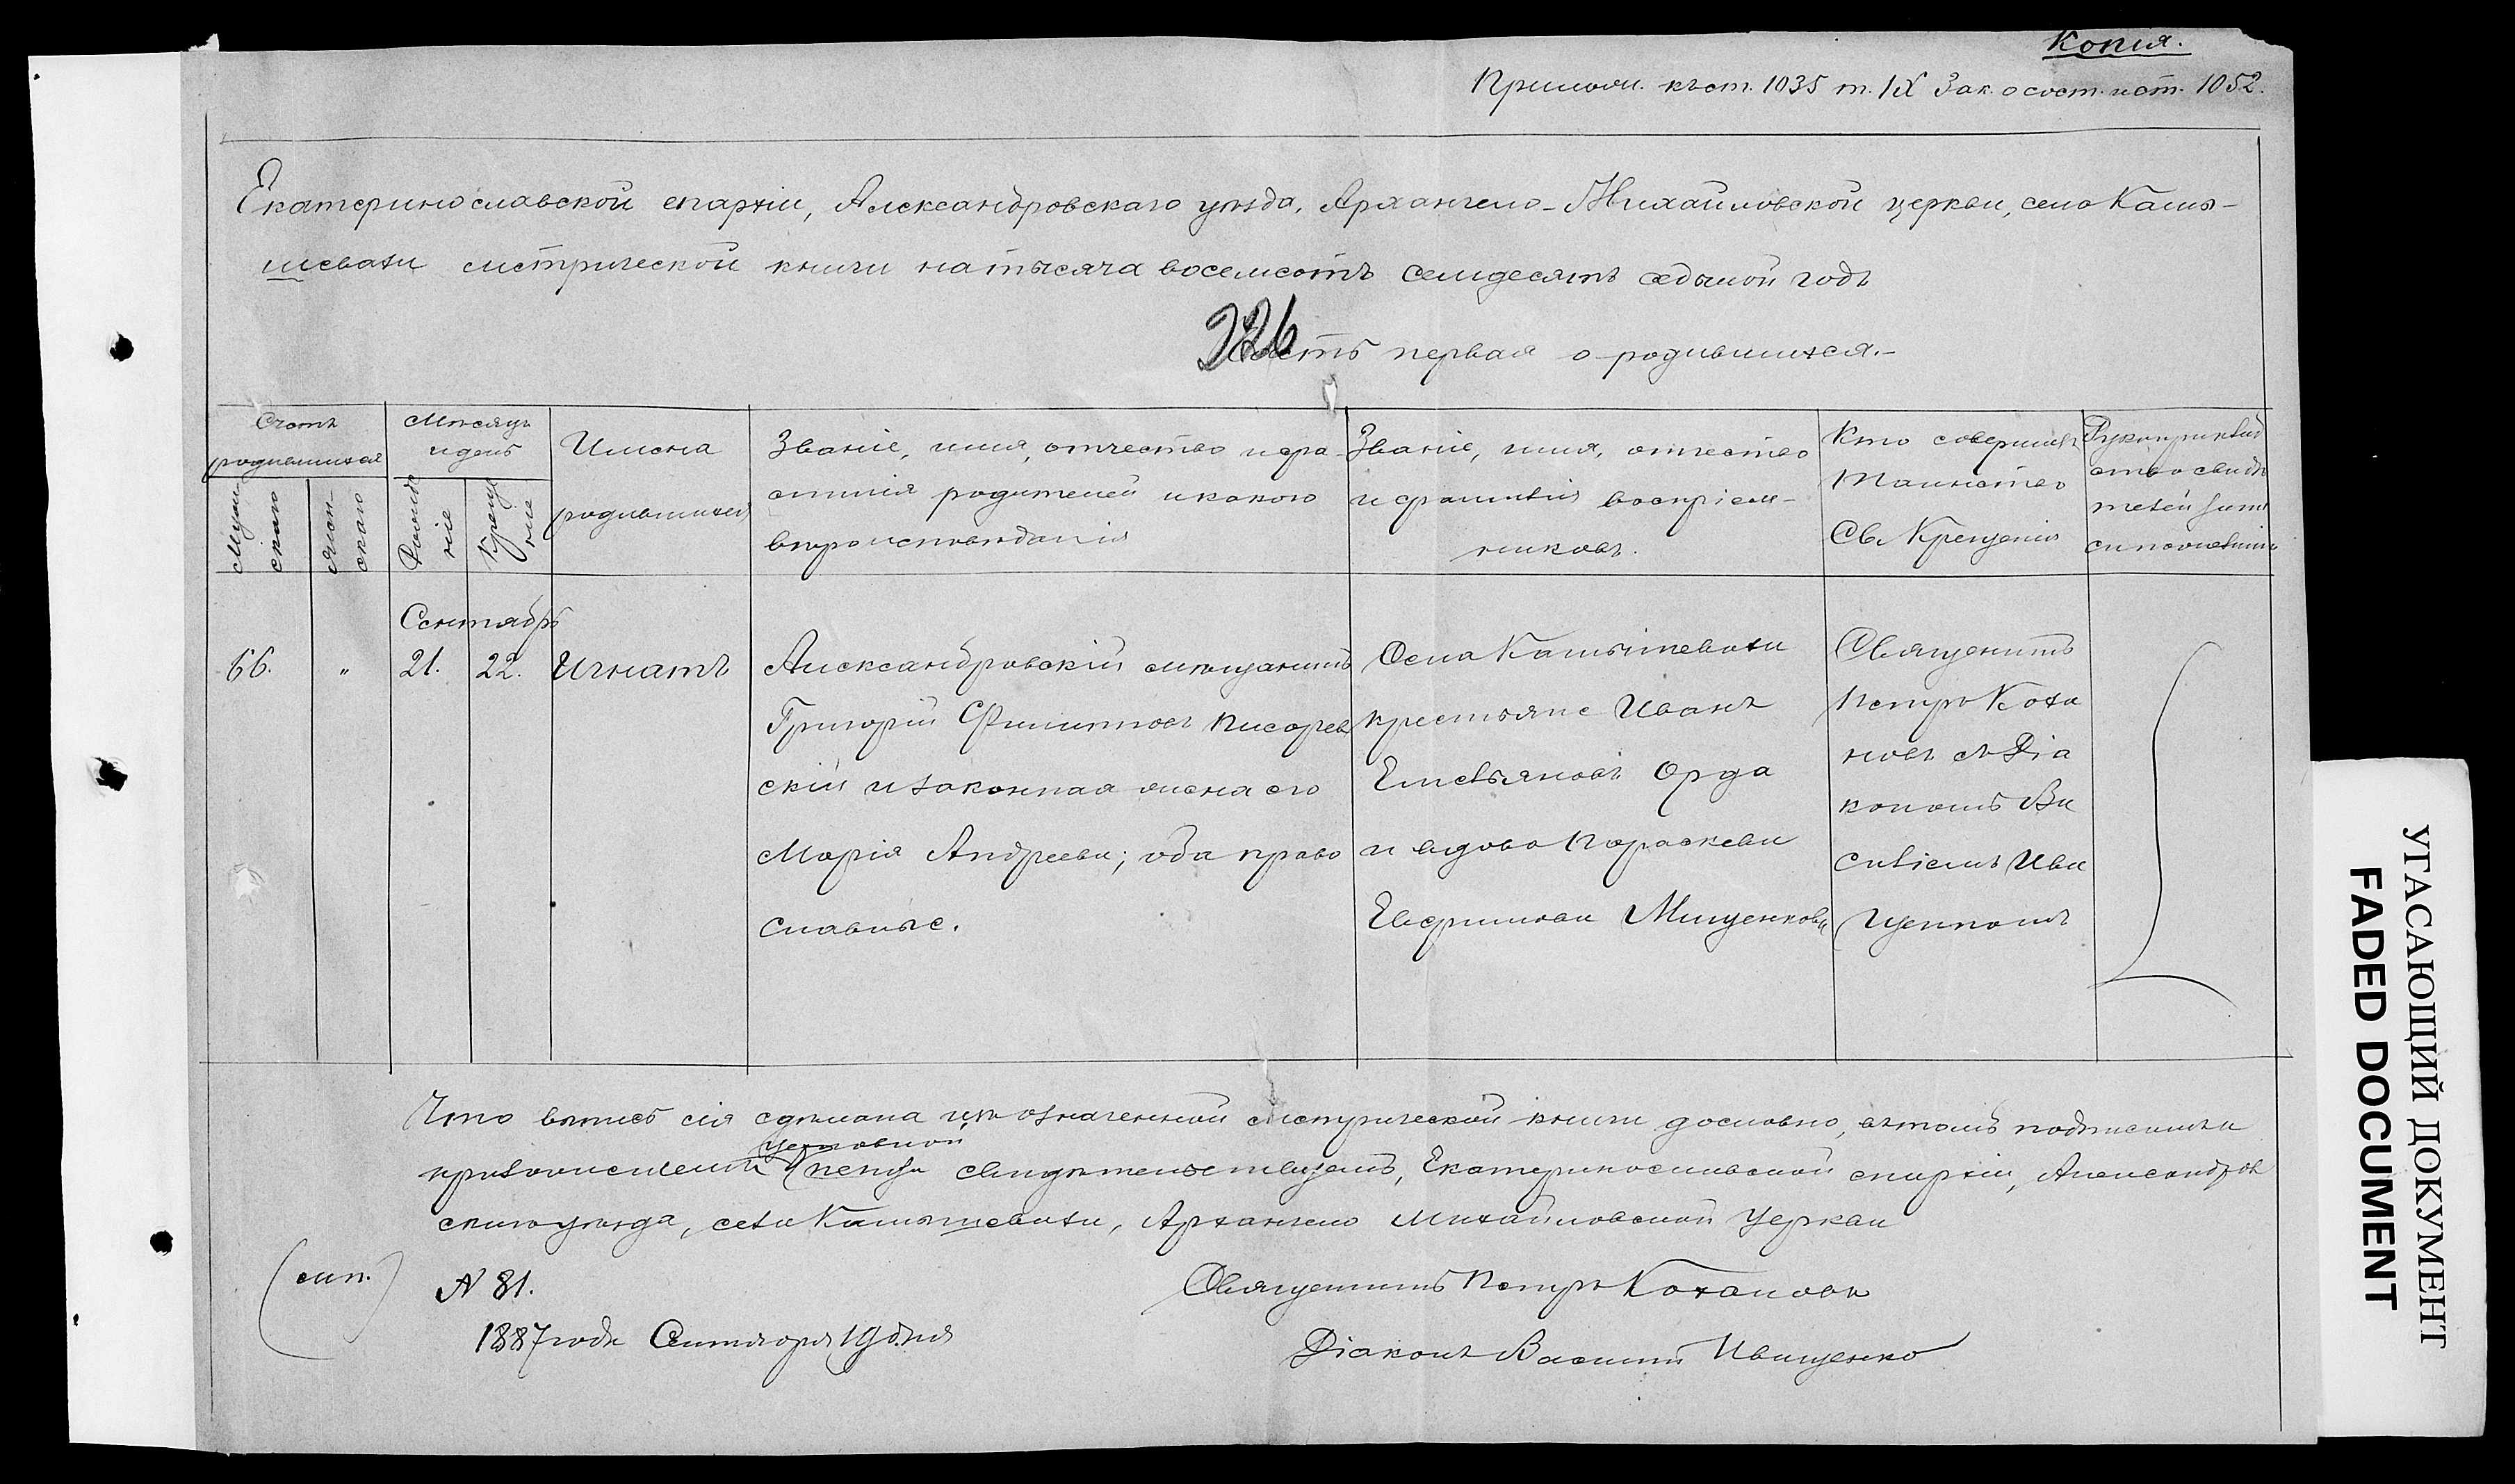 Копія.
Прилож. къ ст. 1035 т. IX Зак. о сост. и ст. 1052.
Екатеринославской епархіи, Александровскаго уѣзда, Архангело-Михайловской церкви, села Камы-
шевахи метрической книги на тысяча восемсотъ семдесятъ седьмой годъ
226
Часть первая о родившихся.-
Счетъ родившихся
Мужескаго
Женскаго
Мѣсяцъ и день
Рожденіе
Крещеніе
Имена
родившихся
Званіе, имя, отчество и фа-
милія родителей и какого
вѣроисповѣданія
Званіе, имя, отчество
и фамилія воспріем-
никовъ.
Кто совершалъ
Таинство
Св. Крещенія
Рукоприклад
ство свидѣ
телей
Сентябрь
66.
"
21.
22.
Игнатъ
Александровскій мѣщанинъ
Григорій Филиповъ Писарев
скій и законная жена его
Марія Андреева; оба право
славные.
Села Камышевахи
крестьяне Иванъ
Емельяновъ Орда
и вдова Параскева
Евфимова Мищенкова
Священникъ
Петръ Коха
новъ съ Діа
кономъ Ва
силіемъ Ива
щенкомъ
Что выпись сія сдѣлана изъ означенной метрической книги дословно, въ томъ подписомъ и
церковной
приложеніемъ печати свидѣтельствуемъ, Екатеринославской епархіи, Александров
скаго уѣзда, села Камышевахи, Архангело Михайловской Церкви
(м.п.)
N 81.
Священникъ Петръ Кохановъ
1887 года Сентября 19 дня
Діаконъ Василій Иващенко
УГАСАЮЩИЙ ДОКУМЕНТ
FADED DOCUMENT